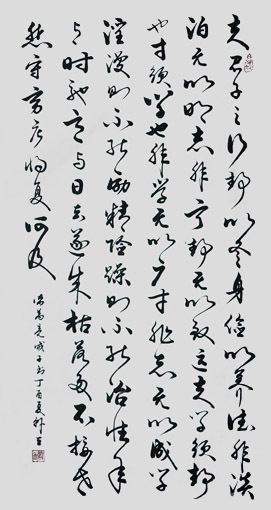 夫君子之行静以修身俭以养德非淡
泊无以明志非宁静无以致远夫学须静
也才须学也非学无以广才非志无以成学
淫漫则不能励精险躁则不能治性年
与时驰意与日去遂成枯落多不接世
悲守穷庐将复何及
诸葛亮诫子书丁酉夏